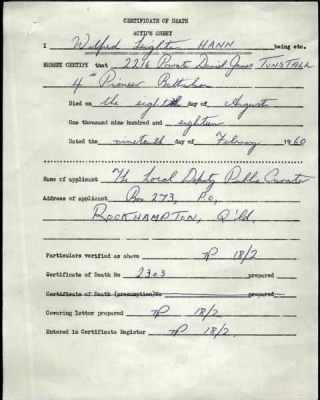 CERTIFICATE OF DEATH
ACTION SHEET
I Wilfred Leighton HANN being etc.
HEREBY CERTIFY that 2276 Private Daniel James TUNSTALL
4th Pioneer Battalion
Died on the eighth day of August
One thousand nine hundred and eighteen
Dated the nineteenth day of February 1960
Name of applicant The Local Deputy Public Curator
Address of applicant Box 273, PO,
ROCKHAMPTON, Q'ld.
Particulars verified as above 18/2
Certificate of Death No 2303 prepared
Certificate of Death (presumption) No prepared
Covering letter prepared 18/2
Entered in Certificate Register 18/2.